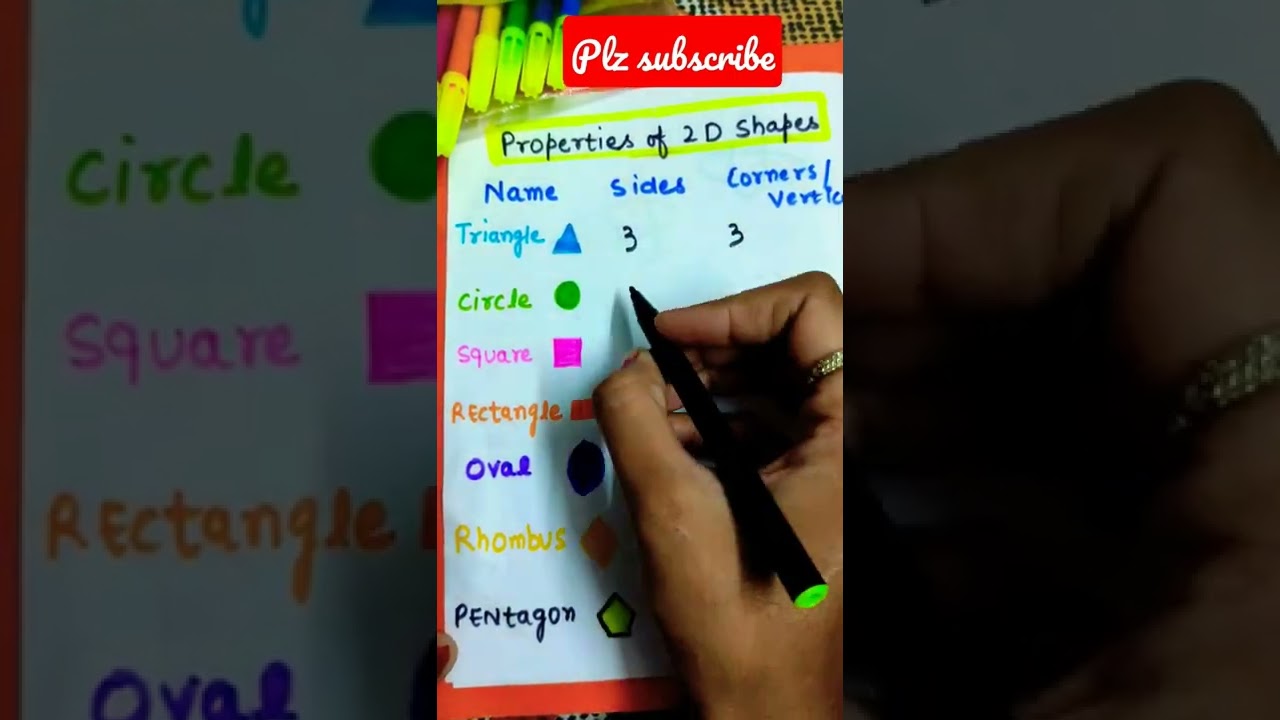 Plz subscribe
Properties of 2D Shapes
Name Sides Corners/
Vertic
Triangle 3 3
Circle
Square
REctangle
Oval
Rhombus
PENtagon
circle
Square
REctangle
Oval